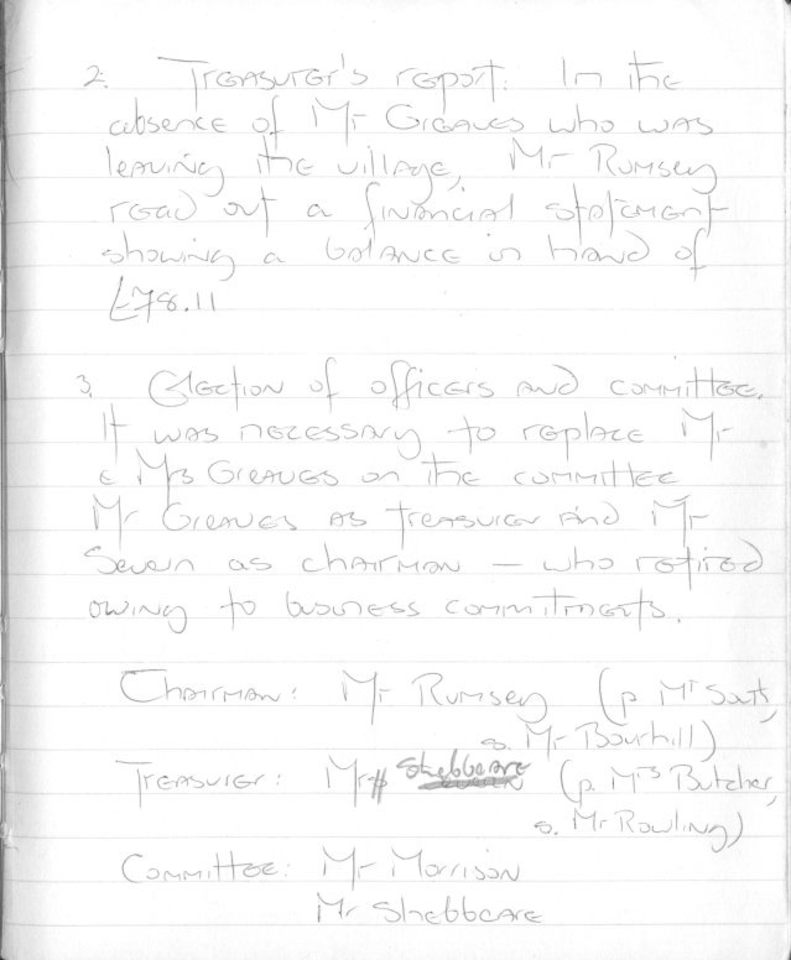 2. Treasurer's report: In the
absence of Mr Greaves who was
leaving the village, Mr Rumsey
read out a financial statement
showing a balance in hand of
£78.11
3. Election of officers and committee.
It was necessary to replace Mr
& Mrs Greaves on the committee
Mr Greaves as treasurer and Mr
Seven as chairman – who retired
owing to business commitments.
Chairman: Mr Rumsey (p Mr
s. Mr Bourhill)
Treasurer: Mr Shebbeare (p. Mrs Butcher,
s. Mr Rowling)
Committee: Mr Morrison
Mr Shebbeare